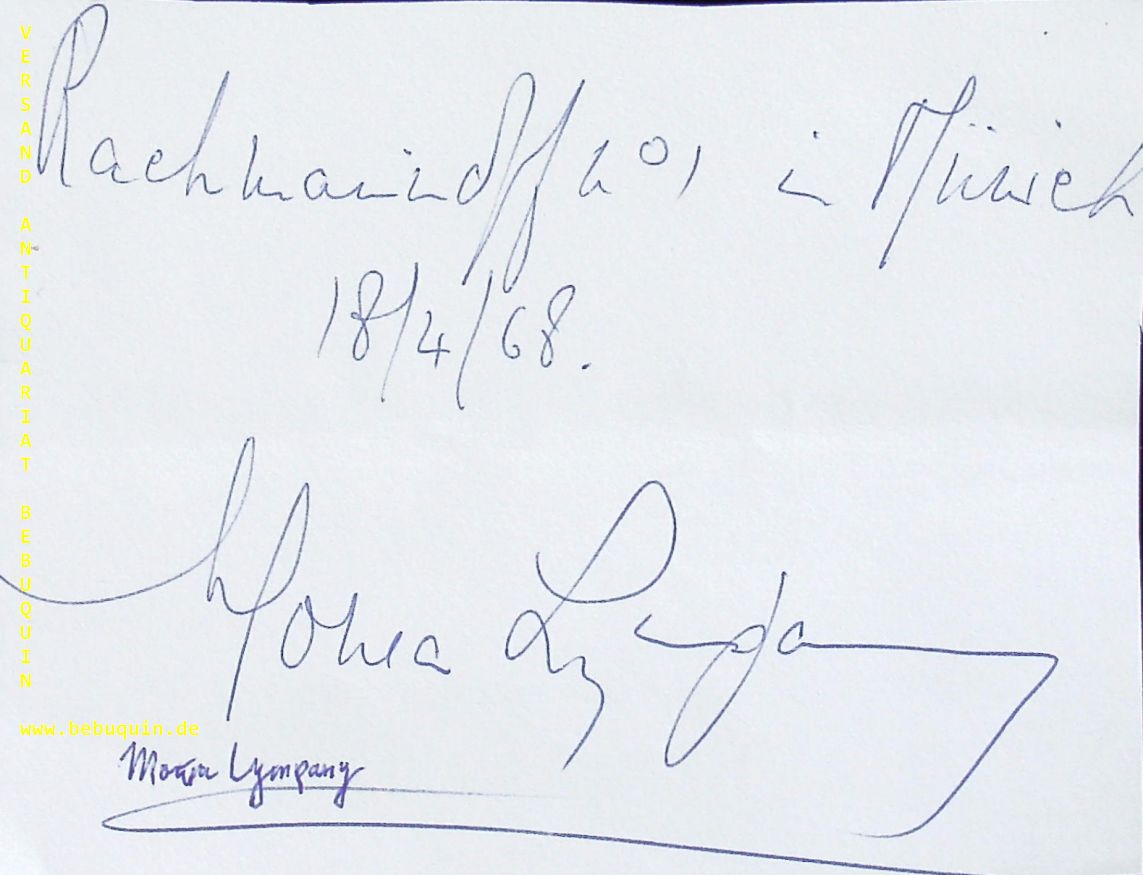 Rachmaninoff No 1 in Münich
18/4/68.
Moura Lympany
Moura Lympany
VERSAND ANTIQUARIAT BEBUQUIN
www.bebuquin.de